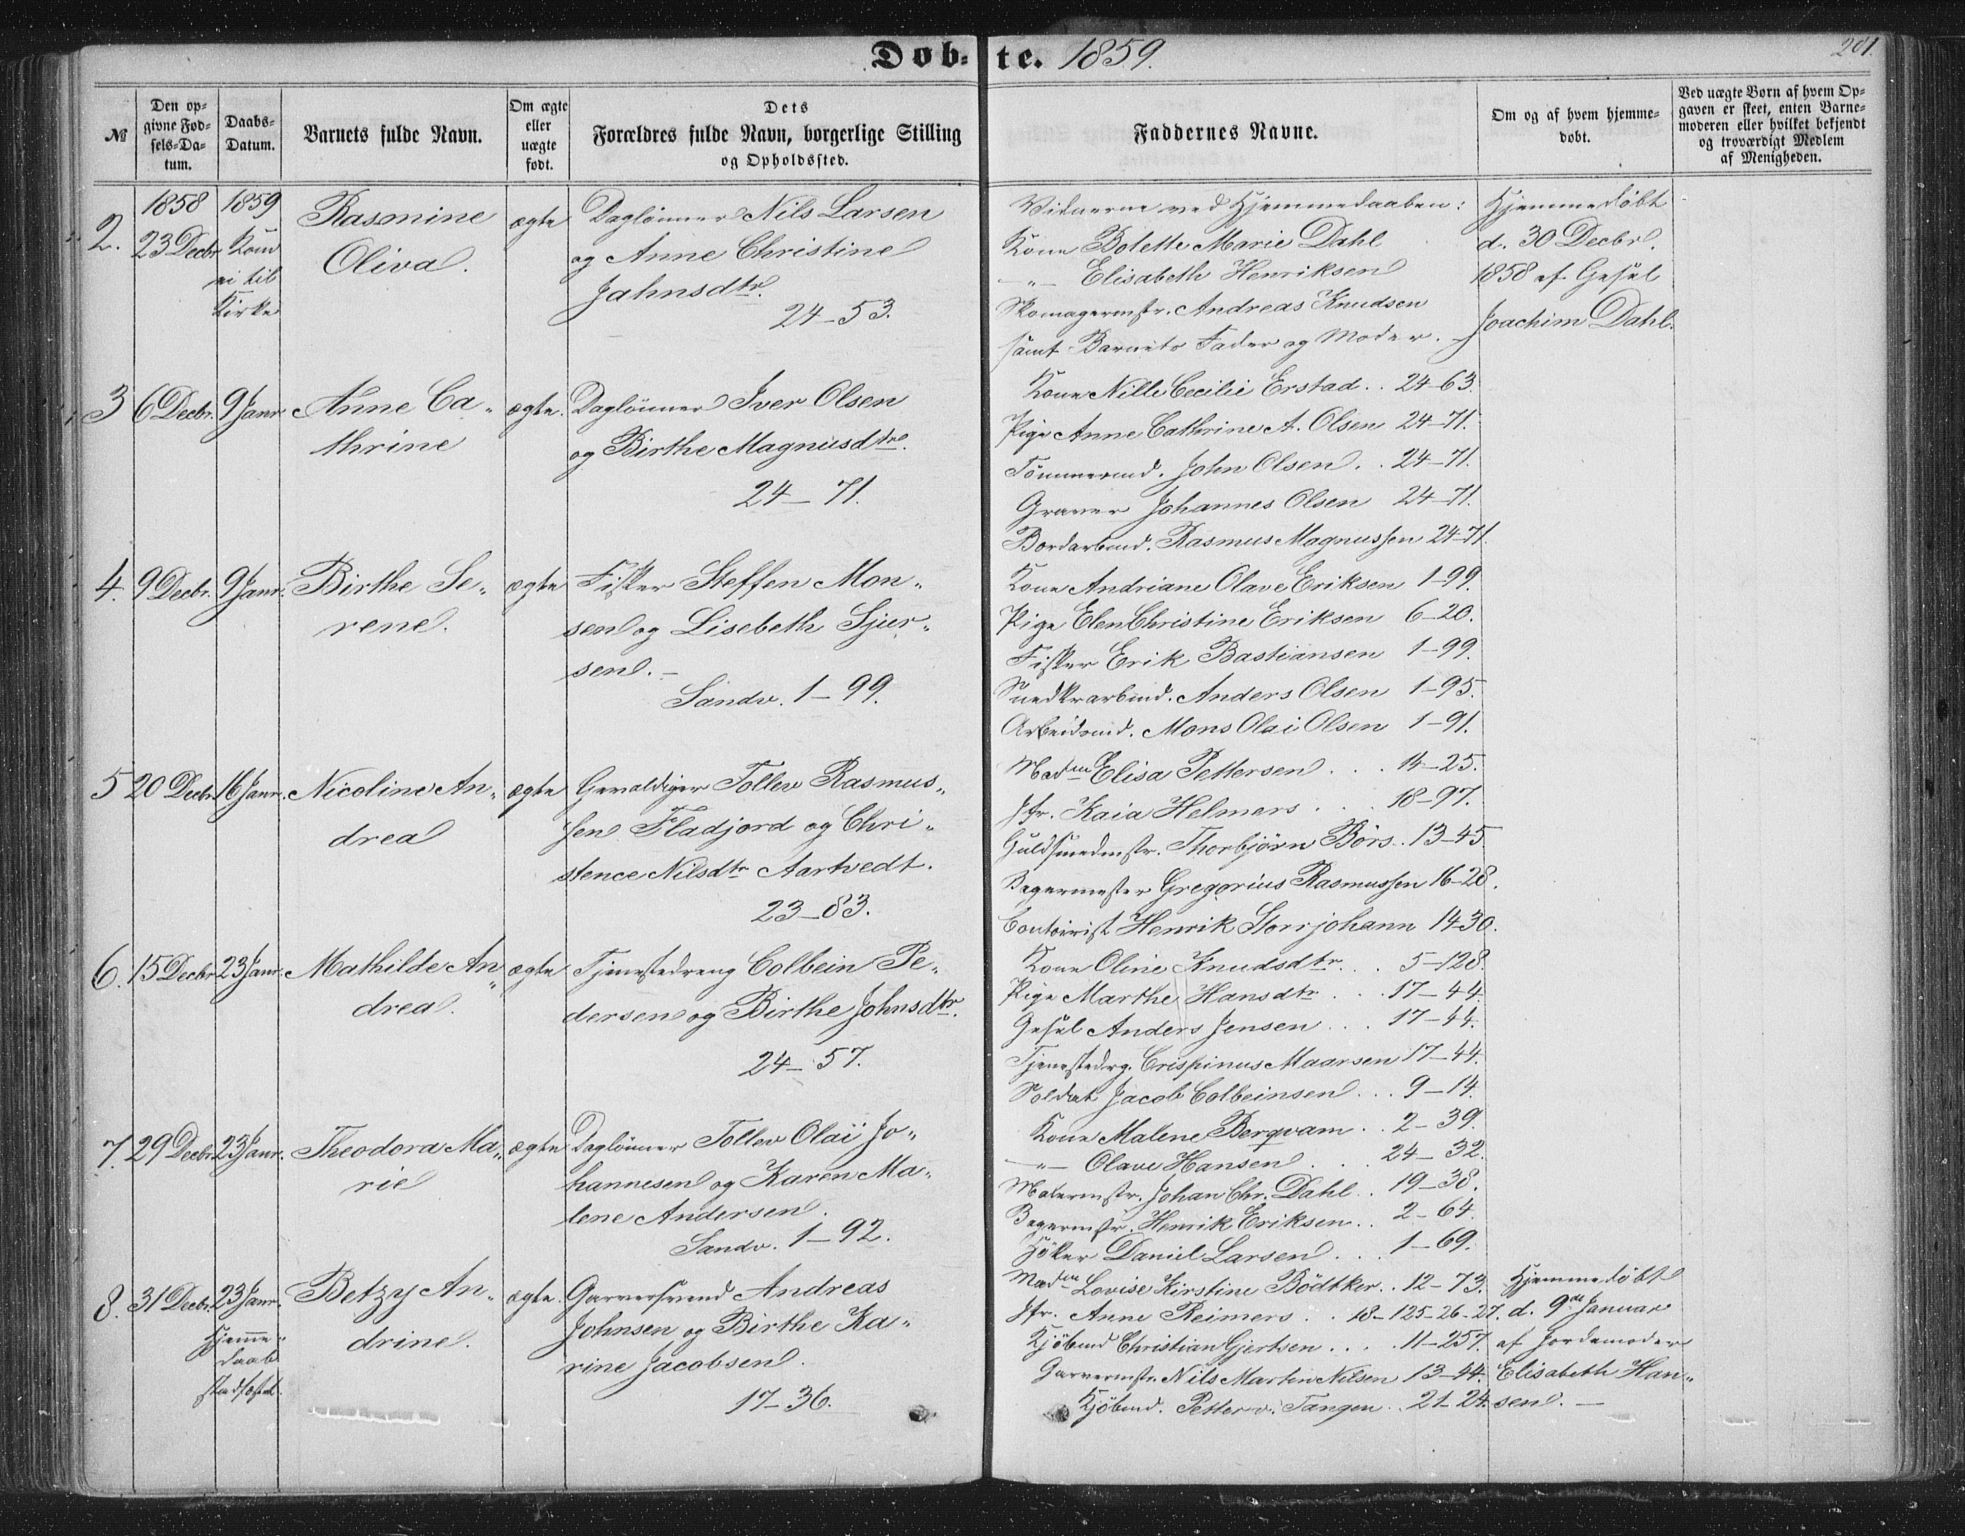 Døb-te. 1859.
201.
№
Den op-
givne Fød-
sels-Da-
tum.
Daabs-
Datum.
Barnets fulde Navn.
Om ægte
eller
uægte
født.
Dets
Forældres fulde Navn, borgerlige Stilling
og Opholdssted.
Faddernes Navne.
Om og af hvem hjemme-
døbt.
Ved uægte Børn af hvem Op-
gaven er skeet, enten Barne-
moderen eller hvilket bekjendt
og troværdigt Medlem
af Menigheden.
2.
1858
23 Decbr
1859
Kom
ei til
Kirke
Rasmine
Oliva.
ægte
Daglønner Nils Larsen
og Anne Christine
Jahnsdtr.
24-53.
Vidnerne ved Hjemmedaaben:
Kone Bolette Marie Dahl
-"- Elisabeth Henriksen
Skomagermstr. Andreas Knudsen
samt Barnets Fader og Moder.
Hjemmedøbt
d. 30 Decbr.
1858 af Gesel
Joachim Dahl.
3
6 Decbr.
9 Janr.
Anne Ca-
thrine
ægte.
Daglønner Iver Olsen
og Birthe Magnusdtre.
24-71.
Kone Nille Cecilie Erstad.. 24-63.
Pige Anne Cathrine A. Olsen 24-71.
Tømmermd. John Olsen.. 24-71.
Graver Johannes Olsen 24-71.
Bordarbmd. Rasmus Magnussen 24-71.
4.
9 Decbr.
9 Janr.
Birthe Se-
rene.
ægte
Fisker Steffen Mon-
sen og Lisebeth Sjur-
sen.-
Sandv. 1-99.
Kone Andriane Olave Eriksen 1-99.
Pige Elen Christine Eriksen 6-20.
Fisker Erik Bastiansen 1-99.
Snedkrarbmd. Anders Olsen 1-95.
Arbeidsmd. Mons Olai Olsen 1-91.
5
20 Decbr
16 Janr.
Nicoline An-
drea
ægte
Gevaldiger Tollev Rasmus-
sen Fladjord og Chri-
stence Nilsdtr Aartvedt.
23-83.
Madm Elisa Pettersen... 14-25.
Jfr. Kaia Helmers... 18-97.
Guldsmedmstr. Thorbjørn Børs.. 13-45
Bagermester Gregorius Rasmussen 16-28.
Contoirist Henrik Storrjohann 14-30.
6.
15 Decbr
23 Janr.
Mathilde An-
drea.
ægte
Tjenestedreng Colbein Pe-
dersen og Birthe Johnsdtr.
24-57.
Kone Oline Knudsdtr... 5-128.
Pige Marthe Hansdtr... 17-44.
Gesel Anders Jensen... 17-44.
Tjenestedrg. Crispinus Maarsen 17-44.
Soldat Jacob Colbeinsen... 9-14.
7.
29 Decbr
23 Janr.
Theodora Ma-
rie
ægte
Daglønner Tollev Olaï Jo-
hannesen og Karen Ma-
lene Andersen.
Sandv. 1-92.
Kone Malene Bergvam.. 2-39.
-"- Olave Hansen... 24-32.
Malermstr. Johan Chr. Dahl.. 19-38.
Bagermstr. Henrik Eriksen.. 2-64.
Høker Daniel Larsen... 1-69.
8.
31 Decbr.
23 Janr.
Hjemme-
daab
stadfæstet.
Betzy An-
drine.
ægte.
Garversvend Andreas
Johnsen og Birthe Ka-
rine Jacobsen.
17-36.
Madm Lovise Kirstine Bödtker.. 12-73.
Jfr. Anne Reimers.. 18-125-26-27.
Kjøbmd Christian Gjertsen.... 11-257.
Garvermstr. Nils Martin Nilsen 13-44.
Kjøbmd. Petter v. Tangen.. 21-24.
Hjemmedøbt
d. 9de Januar
af Jordemoder
Elisabeth Han-
sen.-